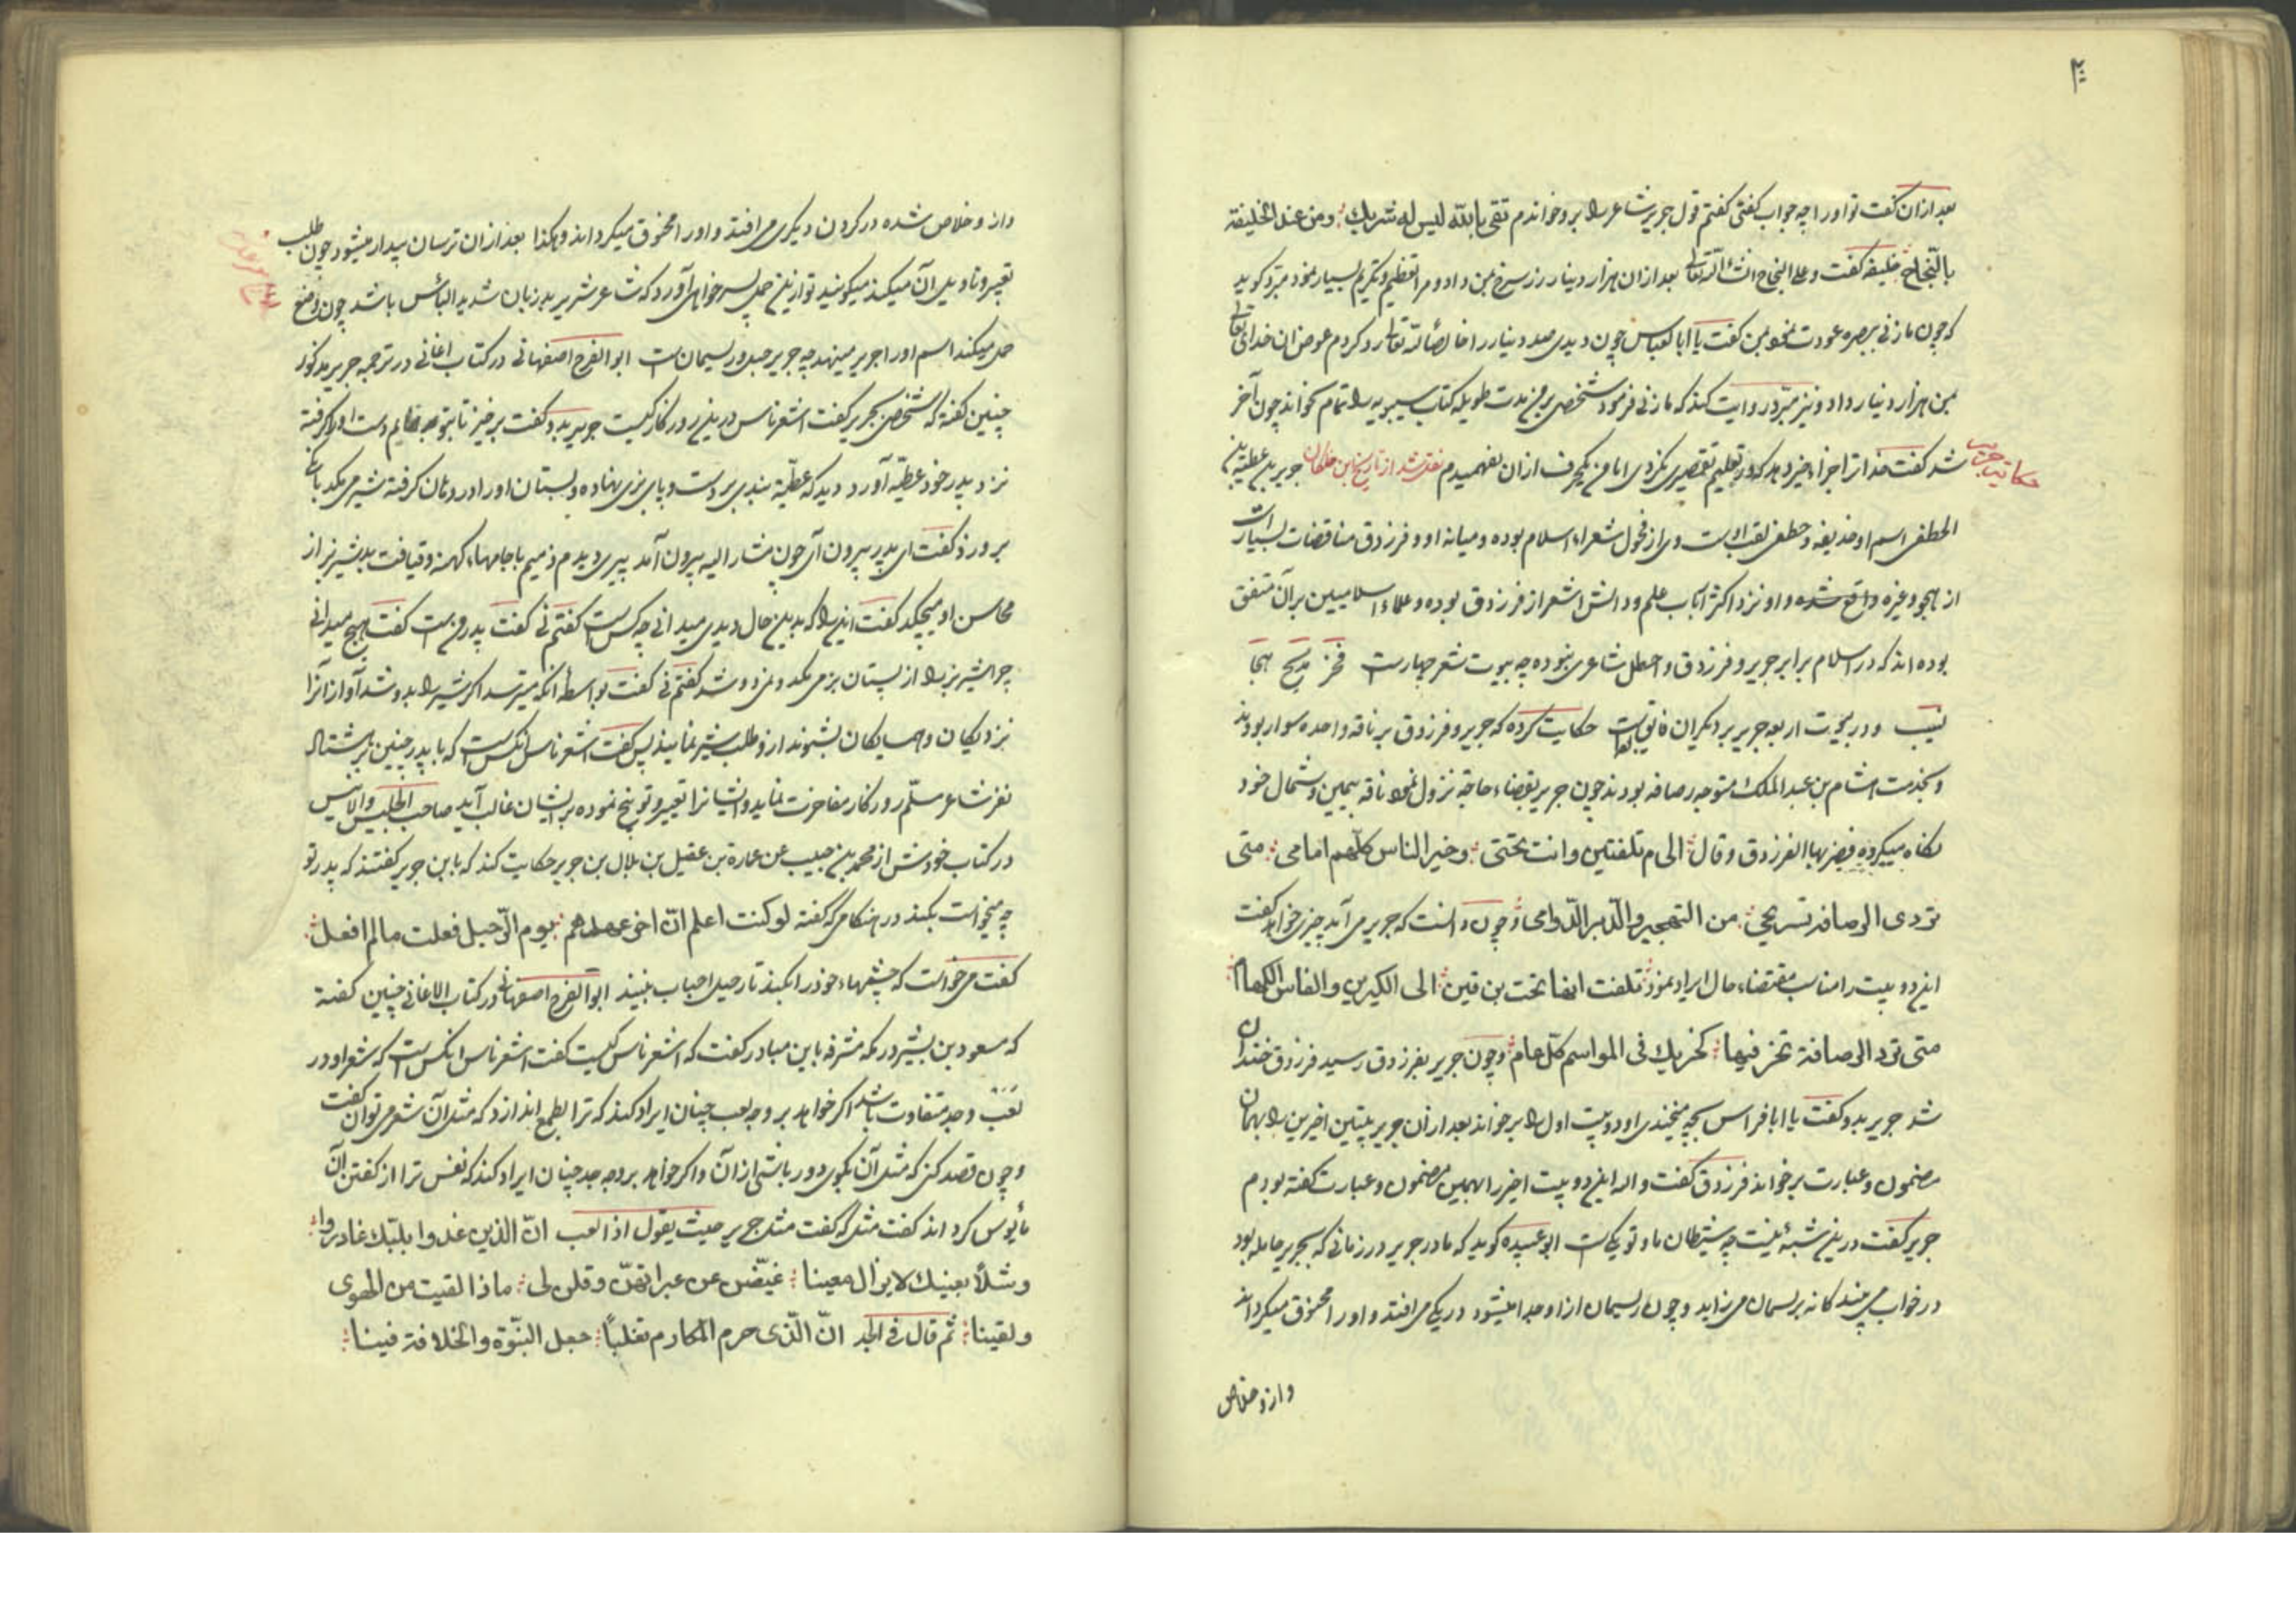 بعد از ان گفت تو او را چه جواب گفتی گفتم قول جریر شاعر را برو خواندم ثقی بالله لیس له شریک ومن عند الخلیفة
بالنّجاح خلیفه گفت وعلی النجاح انشاء الله تعالی بعد از ان هزار دینار زر سرخ بمن داد و مرا تعظیم و تکریم بسیار نمود مبرّد گوید
که چون مازنی ببصره عودت نمود بمن گفت یا ابا العباس چون دیدی صد دینار را خالصاً لله تعالی رد کردم عوض ان خدای تعالی
بمن هزار دینار داد و نیز مبرّد روایت کند که مازنی فرمود شخصی بر من مدت طویله کتاب سیبویه را تمام بخواند چون آخر
شد گفت خدا ترا جزاء خیر دهد که در تعلیم تقصیری نکردی اما من یکحرف از ان نفهمیدم نقل شد از تاریخ ابن خلکان جریر بن عطیة بن
الخطفی اسم او حذیفه و خطفی لقب اوست وی از فحول شعراء اسلام بوده و میانه او و فرزدق مناقضات بسیار است
از هجو و غیره واقع شده و او نزد اکثر ارباب علم و دانش اشعر از فرزدق بوده و علماء اسلامیین بر آن متفق
بوده اند که در اسلام برابر جریر و فرزدق و اخطل شاعری نبوده چه بیوت شعر چهارست فخر مدیح هجا
نسیب و در بیوت اربعه جریر بر دیگران فایق است حکایت کرده که جریر و فرزدق بر ناقه واحده سوار بودند
و بخدمت هشام بن عبد الملک متوجه رصافه بودند چون جریر بقضاء حاجة نزول نمود ناقه بیمین و شمال خود
نگاه میکرد فضربها الفرزدق وقال الی م تلفتین وانت تحتی وخیر الناس کلّهم امامی متی
تردی الرصافة تستریحی من التهجیر والدّبر الدّوامی و چون دانست که جریر می آید چیزی خواهد گفت
این دو بیت را مناسب مقتضاء حال ایراد نمود تلفت انها تحت بن قین الی الکیرین والفاس الکهام
متی ترد الرصافة تخز فیها کخزیک فی المواسم کلّ عام و چون جریر بفرزدق رسید فرزدق خندان
شد جریر بدو گفت یا ابا فراس بچه میخندی او دو بیت اول را برخواند بعد از ان جریر بیتین اخیرین را بهمان
مضمون و عبارت برخواند فرزدق گفت والله این دو بیت اخیر را بهمین مضمون و عبارت گفته بودم
جریر گفت درین شبهٔ نیست چه شیطان ما و تو یکی است ابو عبیده گوید که مادر جریر در زمانی که بجریر حامله بود
در خواب می بیند کانه بریسمان میزاید و چون ریسمان از او جدا میشود در یکی می افتد و او را مخنوق میگرداند
وازو خلاص
وازو خلاص شده در گردن دیگری می افتد و او را مخنوق میگرداند و هکذا بعد از ان ترسان بیدار میشود چون طلب
تعبیر و تاویل آن میکند میگویند تو ازین حمل پسر خواهی آورد که شاعر شریر بد زبان شدید البأس باشد چون وضع
حمل میکند اسم او را جریر مینهد چه جریر حبل و ریسمان است ابو الفرج اصفهانی در کتاب اغانی در ترجمه جریر مذکور
چنین گفته که شخصی بجریر گفت اشعر ناس درین روزگار کیست جریر بدو گفت برخیز تا بتو بنمایم دست او را گرفته
نزد پدر خود عطیّه آورد دید که عطیّه بندی بر دست و پای بزی نهاده و پستان او را در دهان گرفته شیر می مکد بانک
برو زد گفت ای پدر بیرون آی چون مشار الیه بیرون آمد پیری دیدم ذمیم با جامهاء کهنه و قیافت بد شیر بز از
محاسن او میچکد گفت این را که بدین حال دیدی میدانی چه کس است گفتم نی گفت پدر من است گفت هیچ میدانی
چرا شیر بز را از پستان بز می مکد و نمی دوشد گفتم نی گفت بواسطه انکه میترسد اگر شیر را بدوشد آواز انرا
نزدیکان و همسایگان بشنوند ازو طلب شیر نمایند پس گفت اشعر ناس انکس است که با پدر چنین بر هشتاد
نفر شاعر مسلّم روزگار مفاخرت نماید و ایشانرا تعییر و توبیخ نموده بر ایشان غالب آید صاحب الجلیس والانیس
در کتاب خودش از محمد بن حبیب عن عمارة بن عقیل بن بلال بن جریر حکایت کند که بابن جریر گفتند که پدر تو
چه میخواست بکند در هنگامی که گفته لو کنت اعلم انّ اخر عهدهم یوم الرّحیل فعلت مالم افعل
گفت می خواست که چشمهاء خود را بکند تا رحیل احباب نبیند ابو الفرج اصفهانی در کتاب الاغانی چنین گفته
که مسعود بن بشیر در مکه مشرفه بابن مبادر گفت که اشعر ناس کیست گفت اشعر ناس انکس است که شعر او در
لعب وجد متفاوت باشد اگر خواهد بر وجه لعب چنان ایراد کند که ترا بطمع اندازد که مثل آن شعر می توان گفت
و چون قصد کنی که مثل آن بگوی دور باشی از آن و اگر خواهد بر وجه جد چنان ایراد کند که نفس ترا از گفتن آن
مأیوس گرداند گفت مثل که گفت مثل جریر حیث یقول اذا لعب انّ الذین غدوا بلبّک غادروا
وشلاً بعینک لایزال معینا غیّضن من عبراتهنّ وقلن لی ماذا لقیت من الهوی
ولقینا ثم قال فی الجد انّ الّذی حرم المکارم تغلباً جعل النبّوة والخلافة فینا